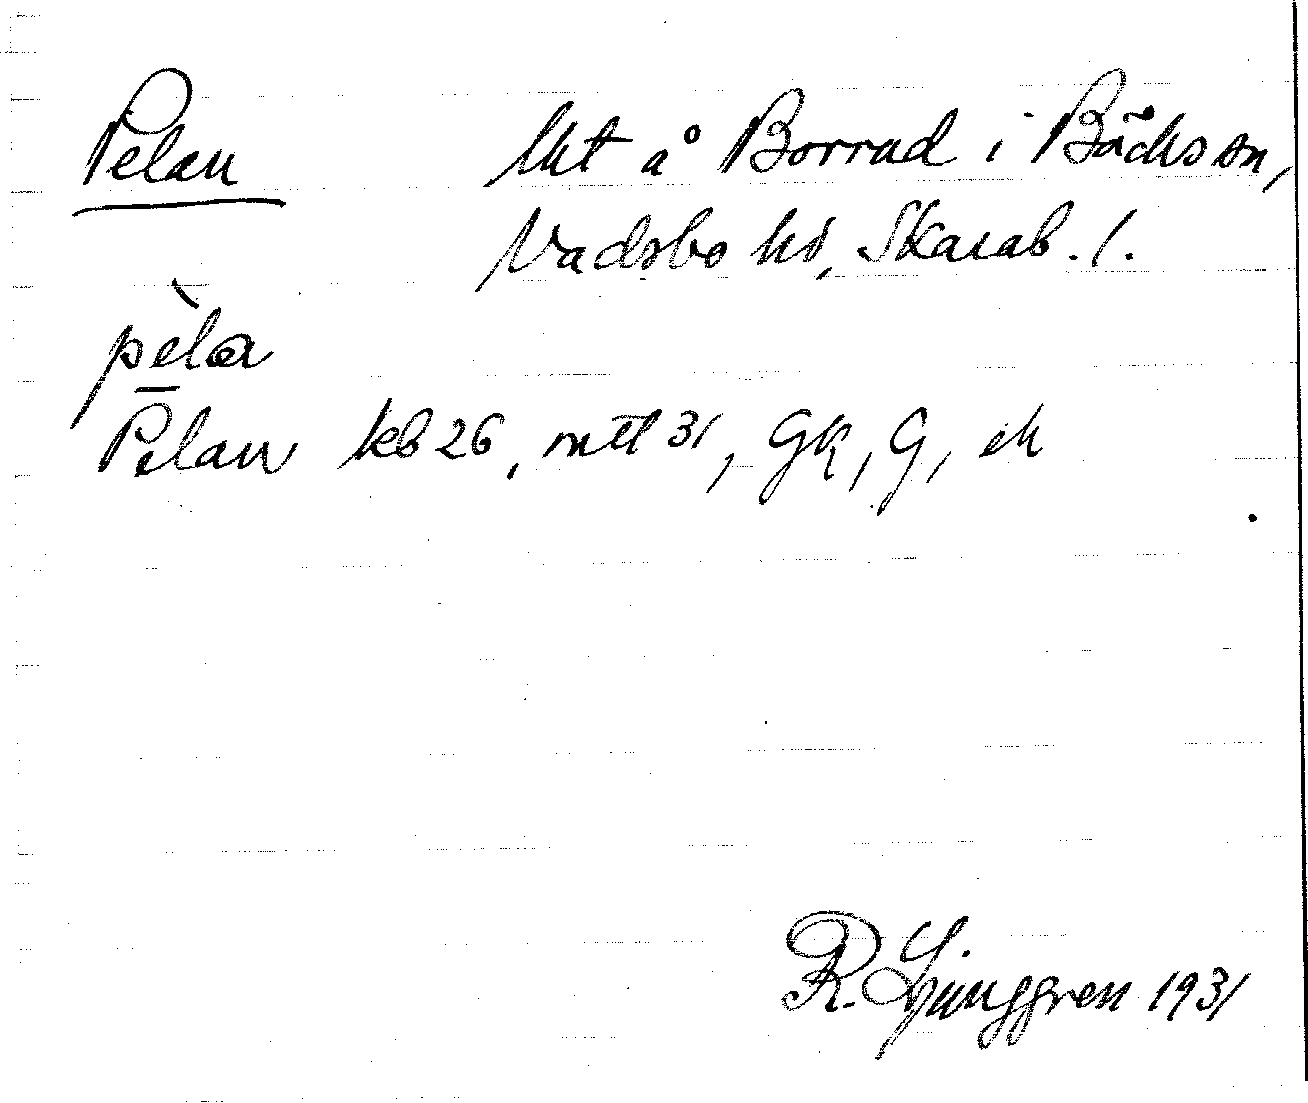 Pelan lht å Borrud i Bäcks sn,
Vadsbo hd, Skarab. l.
pèla
Pelan kb 26, mtl 31, GK, G, ek
R. Ljunggren 1931